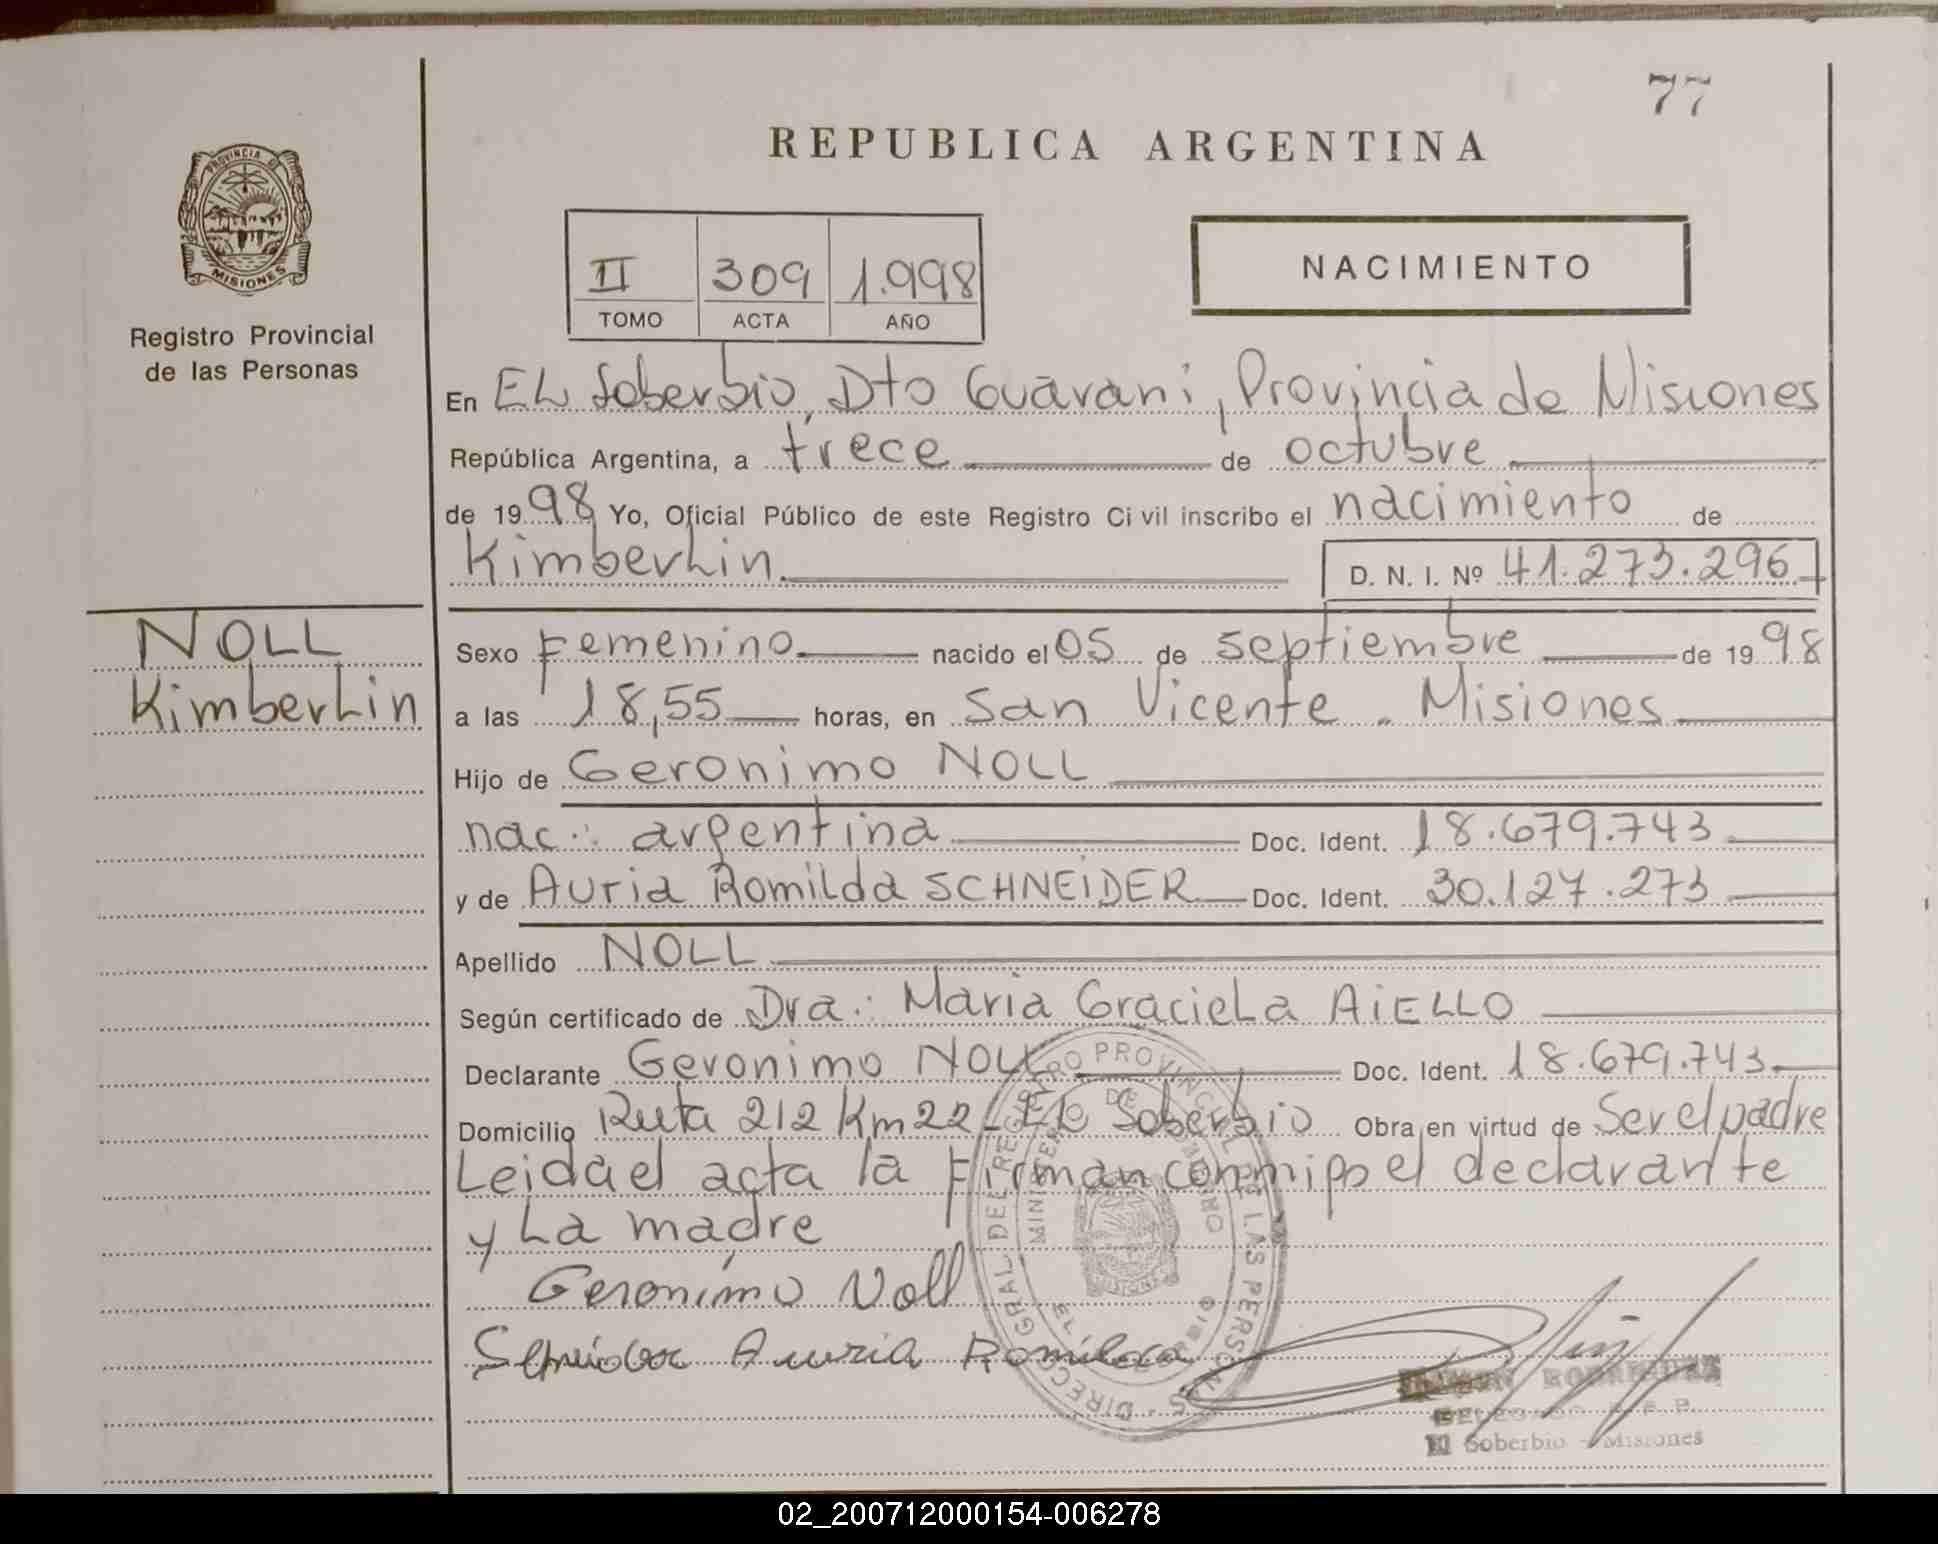 77
REPUBLICA ARGENTINA
PROVINCIA D
MISIONES
Registro Provincial
de las Personas
II 309 1.998
TOMO ACTA AÑO
NACIMIENTO
En EL Soberbio, Dto Guarani, Provincia de Misiones
República Argentina, a trece de octubre
de 1998 Yo, Oficial Público de este Registro Civil inscribo el nacimiento de
KimberLin D. N. I. Nº 41.273.296
NOLL
KimberLin
Sexo Femenino nacido el 05 de septiembre de 1998
a las 18,55 horas, en San Vicente - Misiones
Hijo de Geronimo NOLL
nac.: argentina Doc. Ident. 18.679.743
y de Auria Romilda SCHNEIDER Doc. Ident. 30.127.273
Apellido NOLL
Según certificado de Dra.: Maria GracieLa AiELLO
Declarante Geronimo NOLL Doc. Ident. 18.679.743
Domicilio Ruta 212 Km 22 - EL Soberbio Obra en virtud de Ser el padre
Leida el acta la Firman conmigo el declarante
y La madre
Geronimo Noll
Auria Romilda
DIRECC. GRAL. DEL REGISTRO PROVINCIAL DE LAS PERSONAS
MINISTERIO DE GOBIERNO
EL SOBERBIO
RODRIGUEZ
DELEGADO R. P. P.
El Soberbio - Misiones
02_200712000154-006278